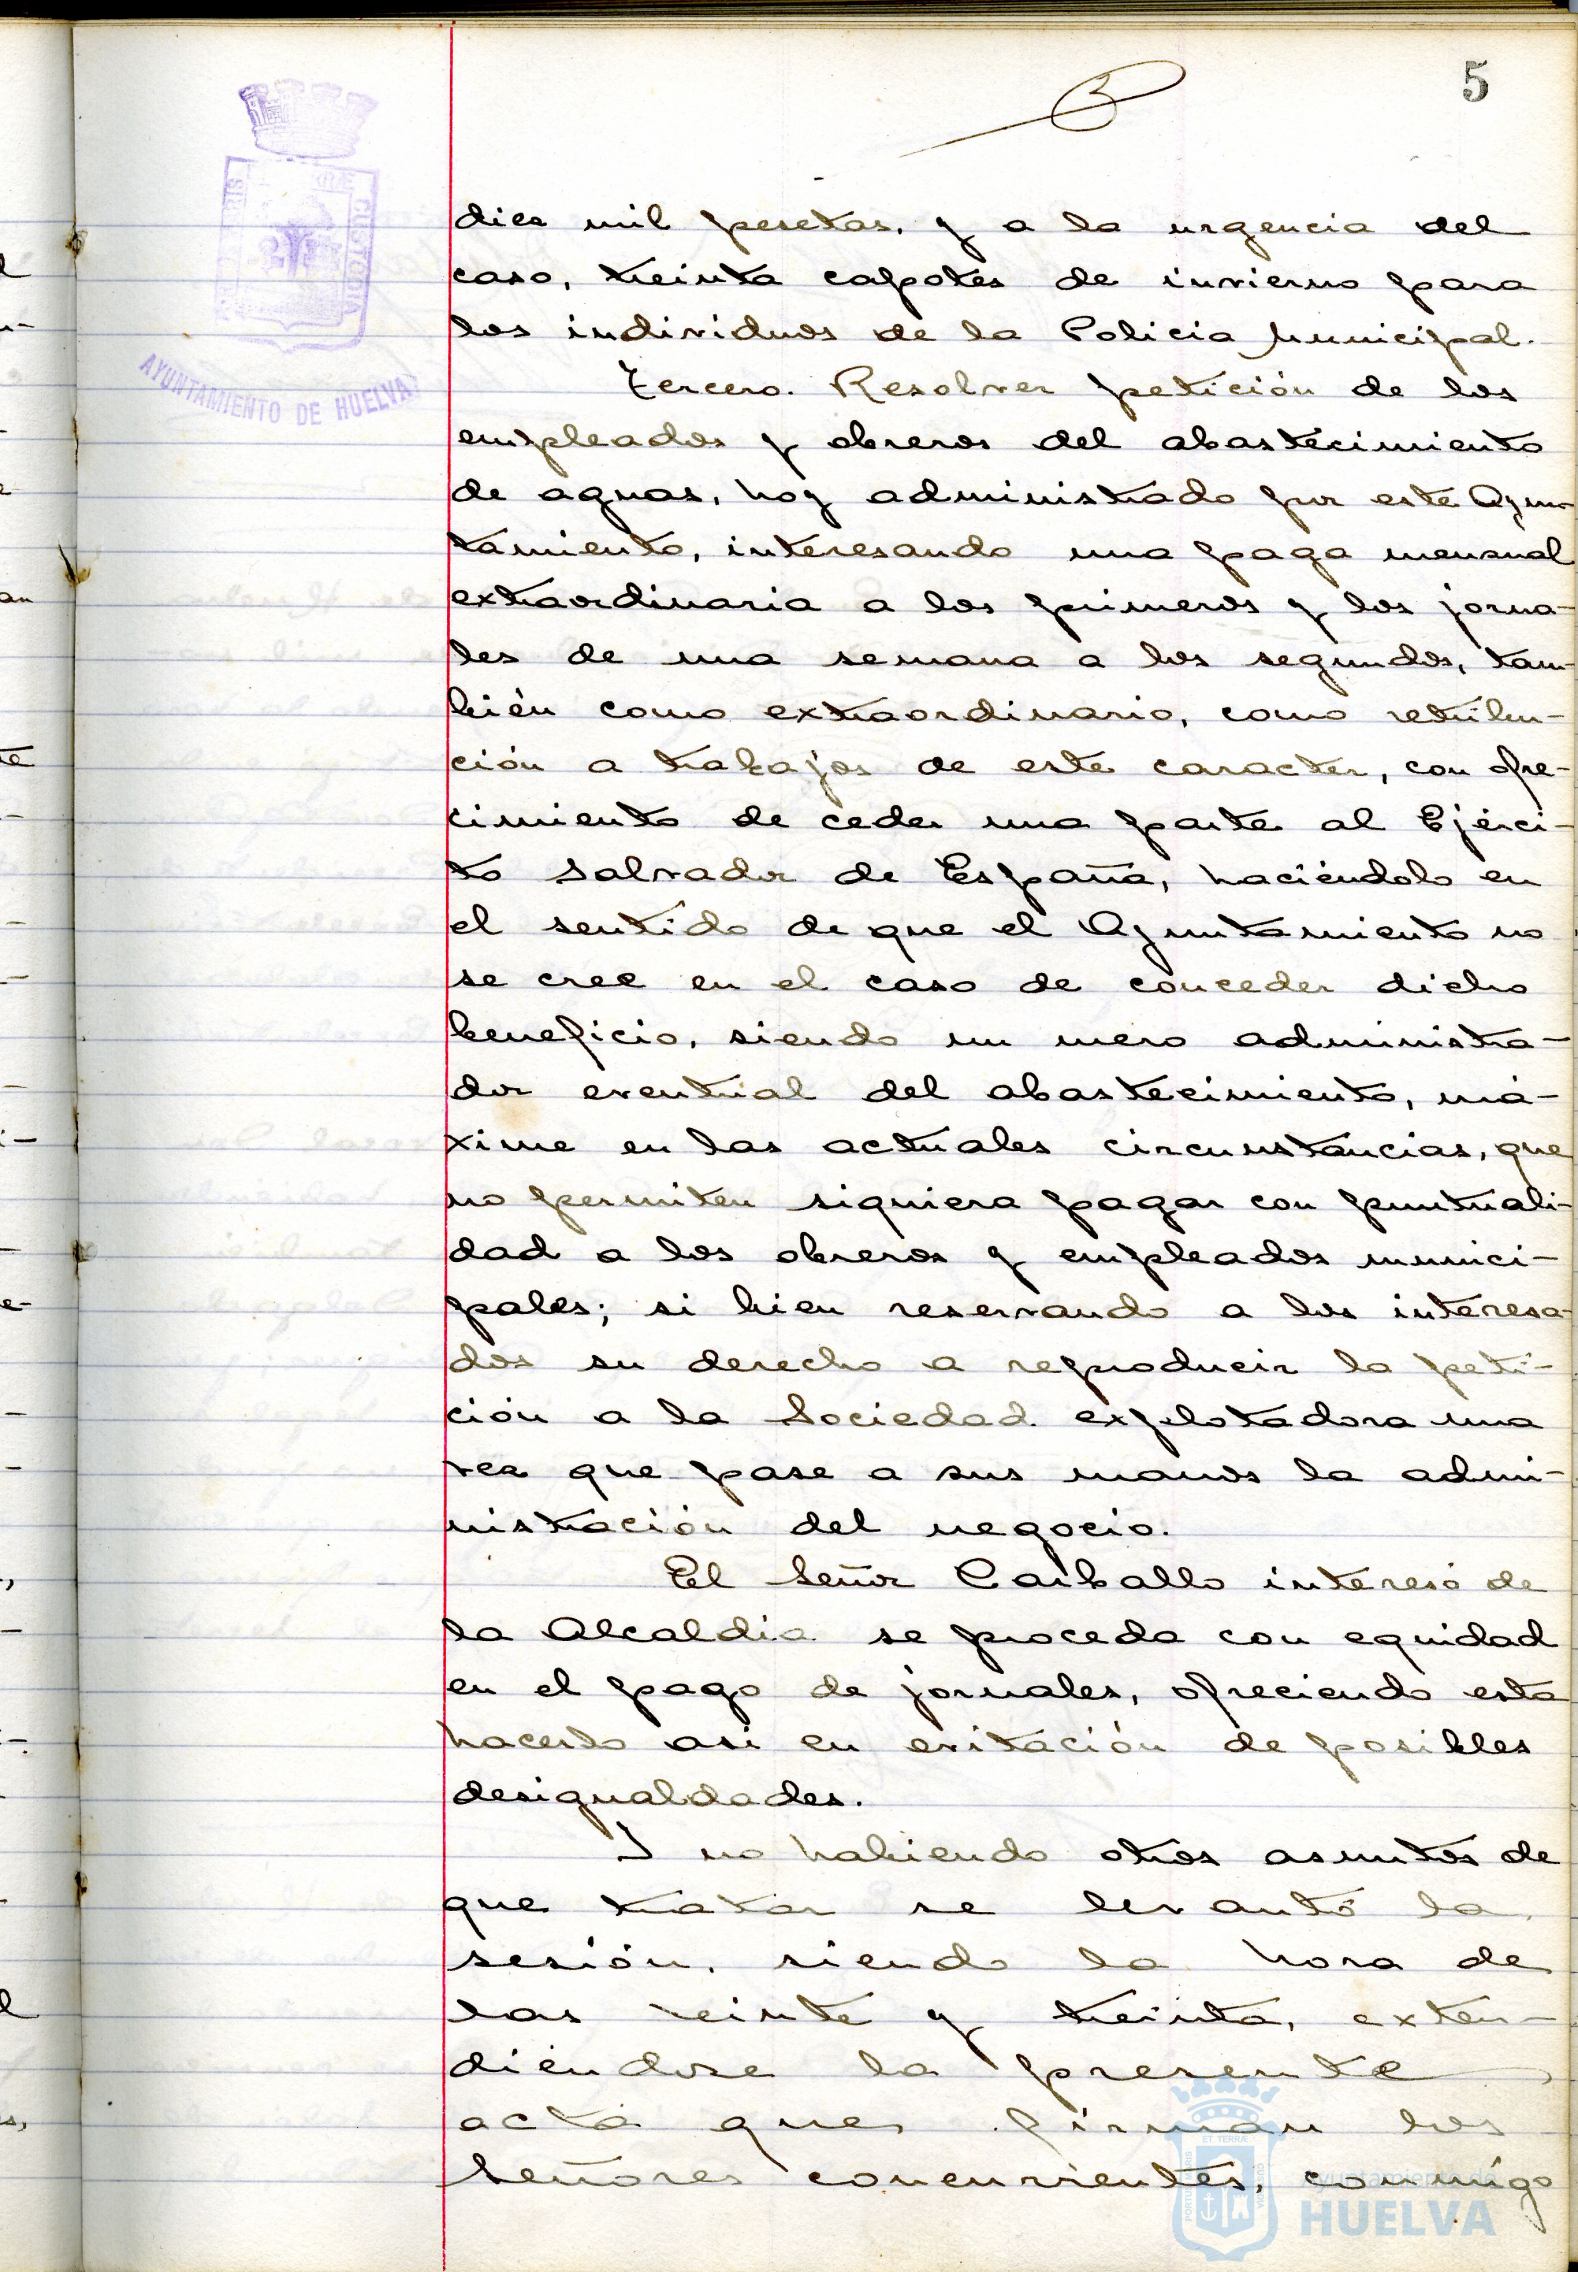 5
AYUNTAMIENTO DE HUELVA
diez mil pesetas, y a la urgencia del
caso, treinta capotes de invierno para
los individuos de la Policia Municipal.
Tercero. Resolver petición de los
empleados y obreros del abastecimiento
de aguas, hoy administrado por este Ayun-
tamiento, interesando una paga mensual
extraordinaria a los primeros y los jorna-
les de una semana a los segundos, tam-
bién como extraordinario, como retribu-
ción a trabajos de este caracter, con ofre-
cimiento de ceder una parte al Ejérci-
to Salvador de España, haciéndolo en
el sentido de que el Ayuntamiento no
se cree en el caso de conceder dicho
beneficio, siendo un mero administra-
dor eventual del abastecimiento, má-
xime en las actuales circunstancias, que
no permiten siquiera pagar con puntuali-
dad a los obreros y empleados munici-
pales; si bien reservando a los interesa-
dos su derecho a reproducir la peti-
ción a la Sociedad explotadora una
vez que pase a sus manos la admi-
nistración del negocio.
El Señor Carballo interesó de
la Alcaldia se proceda con equidad
en el pago de jornales, ofreciendo esta
hacerlo asi en evitación de posibles
desigualdades.
Y no habiendo otros asuntos de
que tratar se levantó la
sesión, siendo la hora de
las veinte y treinta, exten-
diéndose la presente
acta que firman los
Señores concurrentes, conmigo
Ayuntamiento de
HUELVA